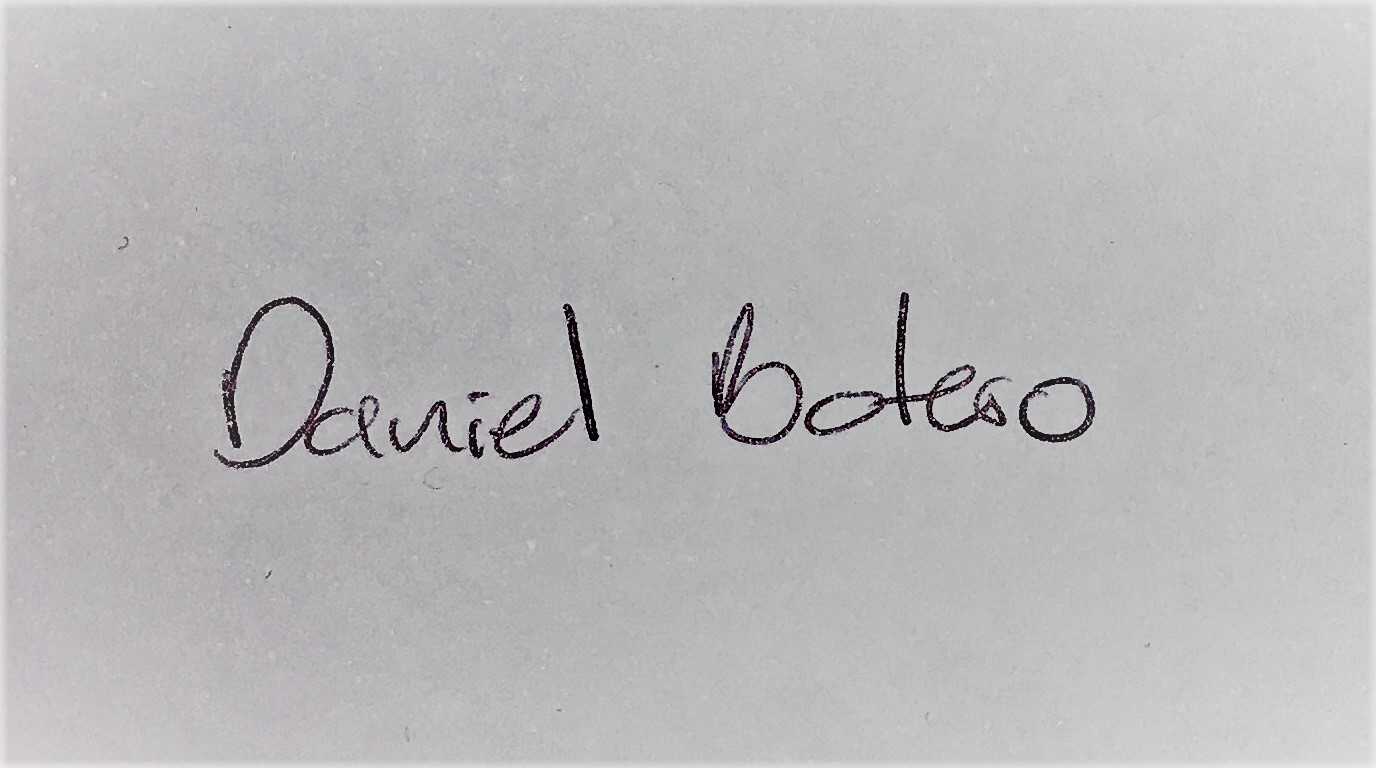 Daniel Botero